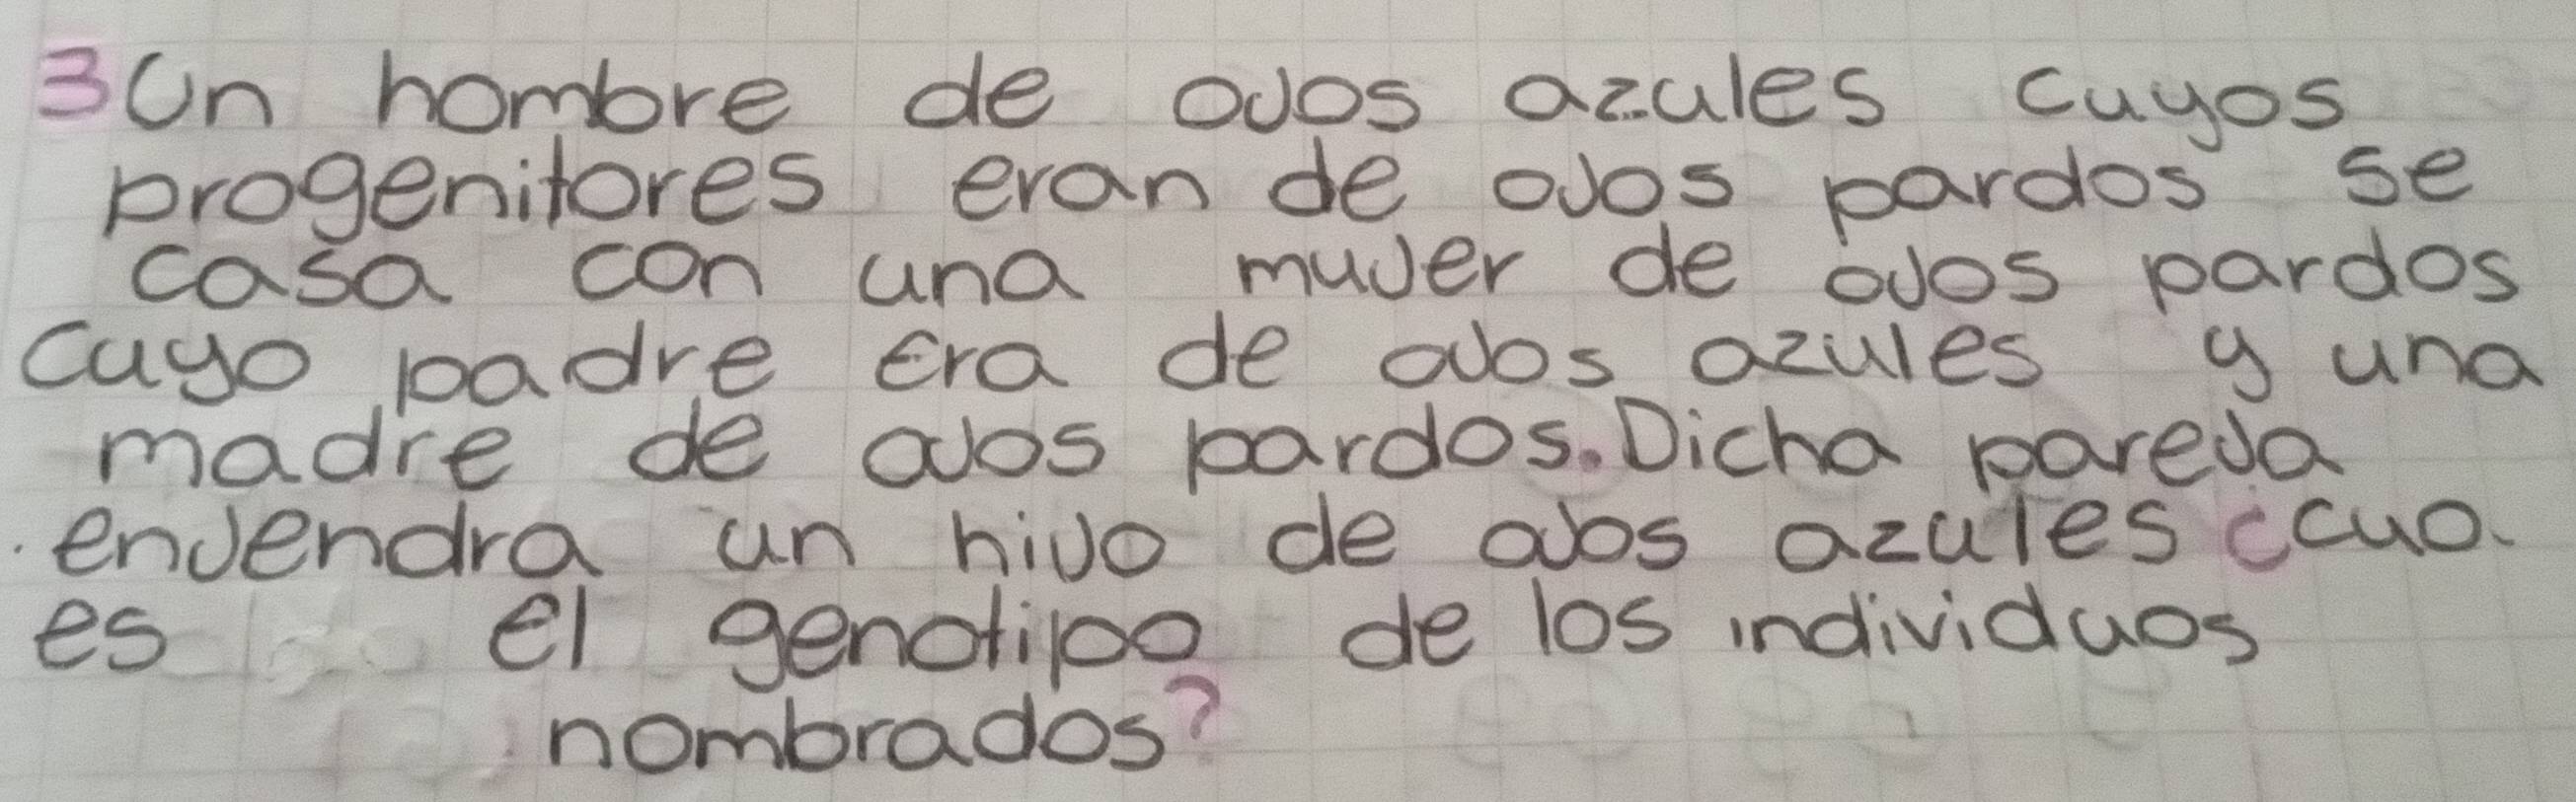 3 Un hombre de ojos azules cuyos
progenitores eran de ojos pardos se
casa con una mujer de ojos pardos
Cuyo padre era de ojos azules y una
madre de ojos pardos. Dicha pareja
enjendra un hijo de ojos azules ¿cuo
es el genotipo de los individuos
nombrados?